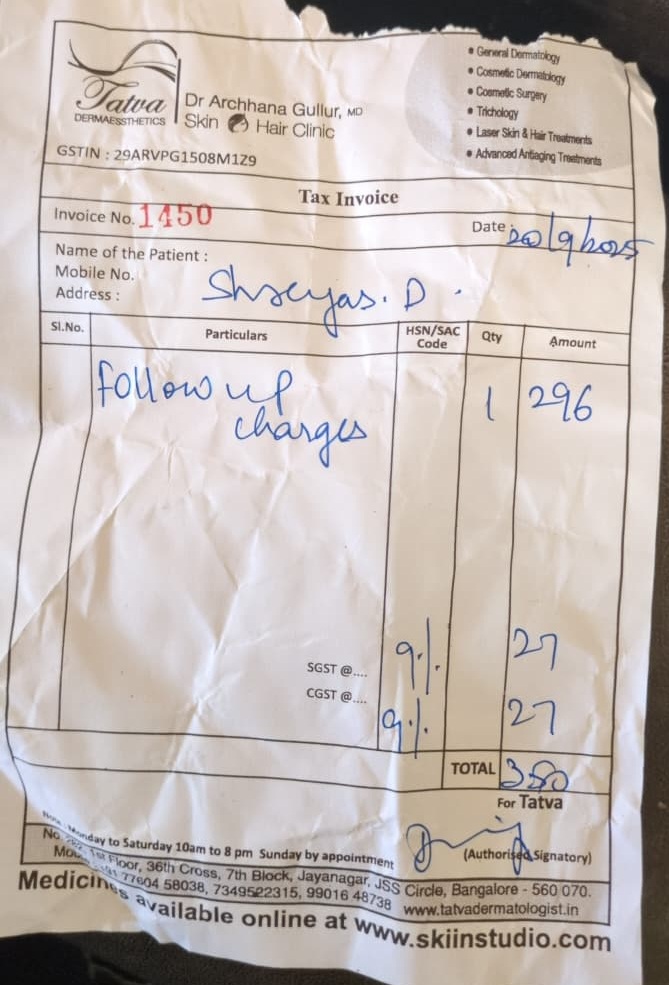 Tatva
DERMAESSTHETICS
Dr Archhana Gullur, MD
Skin Hair Clinic
• General Dermatology
• Cosmetic Dermatology
• Cosmetic Surgery
• Trichology
• Laser Skin & Hair Treatments
• Advanced Antiaging Treatments
GSTIN : 29ARVPG1508M1Z9
Tax Invoice
Invoice No. 1450
Date : 20/9/2025
Name of the Patient :
Mobile No.
Address :
Shreyas. D.
Sl.No. Particulars HSN/SAC Code Qty Amount
Follow up 1 296
charges
SGST @.... 9% 27
CGST @.... 9% 27
TOTAL 350
For Tatva
(Authorised Signatory)
Monday to Saturday 10am to 8 pm Sunday by appointment
No. 1st Floor, 36th Cross, 7th Block, Jayanagar, JSS Circle, Bangalore - 560 070.
77604 58038, 7349522315, 99016 48738 www.tatvadermatologist.in
Medicines available online at www.skiinstudio.com